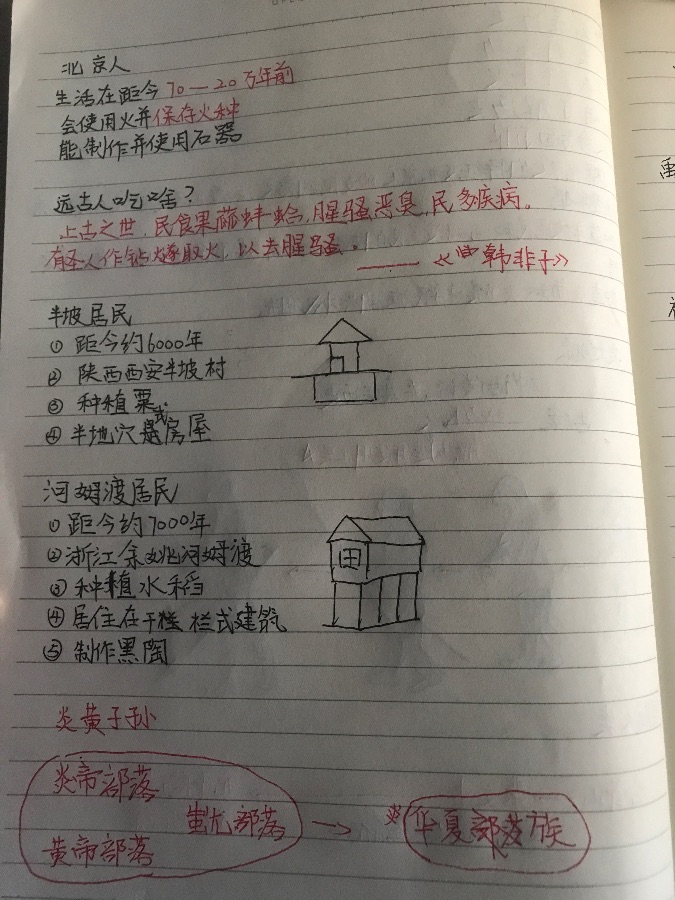 北京人
生活在距今70—20万年前
会使用火并保存火种
能制作并使用石器
远古人吃啥?
上古之世,民食果蓏蚌蛤,腥骚恶臭,民多疾病。
有圣人作钻燧取火,以去腥骚。
——《韩非子》
半坡居民
① 距今约6000年
② 陕西西安半坡村
③ 种植粟
④ 半地穴式房屋
河姆渡居民
① 距今约7000年
② 浙江余姚河姆渡
③ 种植水稻
④ 居住在干栏式建筑
⑤ 制作黑陶
炎黄子孙
炎帝部落
蚩尤部落 → ※华夏族
黄帝部落
禹